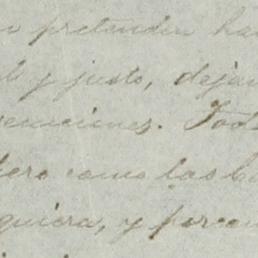 n pretenden ha
l y justo, dejan
enciones. Tod
ero como las b
quiera, y porcon